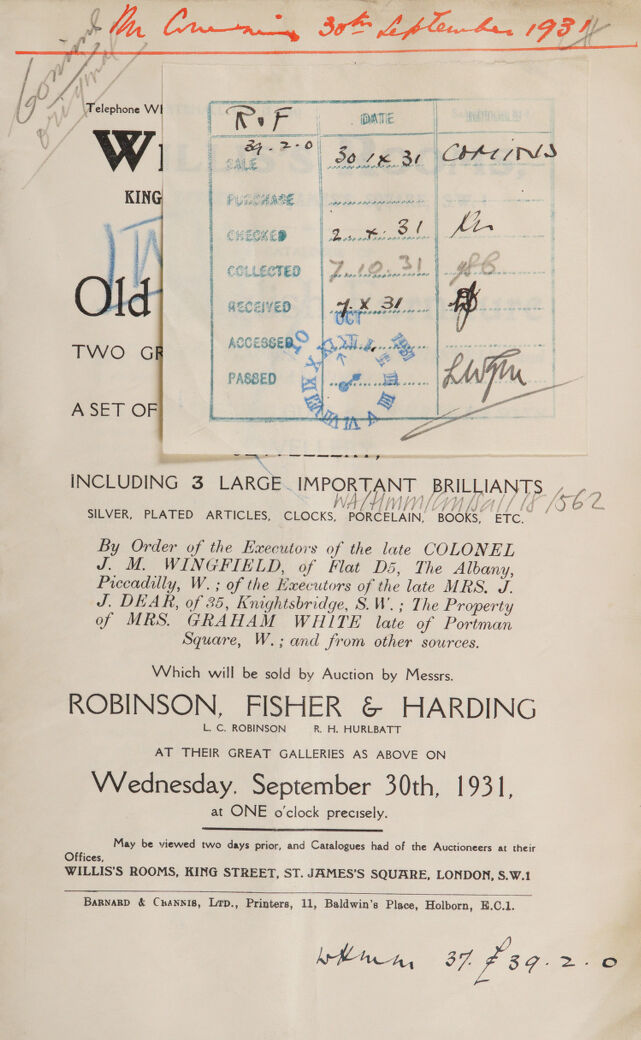 30th September 1931
Comins
original
Telephone WI
R.F DATE
39.2.0
SALE 30 IX 31 COMINS
PURCHASE
CHECKED 2. X. 31
COLLECTED 7.10.31
RECEIVED 7 X 31
OCT
1931
ACCESSED
PASSED
W
KING
Old
TWO GR
A SET OF
INCLUDING 3 LARGE IMPORTANT BRILLIANTS
WA/HMM/Cm/Sal/18/562
SILVER, PLATED ARTICLES, CLOCKS, PORCELAIN, BOOKS, ETC.
By Order of the Executors of the late COLONEL
J. M. WINGFIELD, of Flat D5, The Albany,
Piccadilly, W. ; of the Executors of the late MRS. J.
J. DEAR, of 35, Knightsbridge, S.W. ; The Property
of MRS. GRAHAM WHITE late of Portman
Square, W. ; and from other sources.
Which will be sold by Auction by Messrs.
ROBINSON, FISHER & HARDING
L. C. ROBINSON R. H. HURLBATT
AT THEIR GREAT GALLERIES AS ABOVE ON
Wednesday, September 30th, 1931,
at ONE o'clock precisely.
May be viewed two days prior, and Catalogues had of the Auctioneers at their
Offices,
WILLIS'S ROOMS, KING STREET, ST. JAMES'S SQUARE, LONDON, S.W.1
BARNARD & CRANNIS, LTD., Printers, 11, Baldwin's Place, Holborn, E.C.1.
WHMM 37. £39.2.0